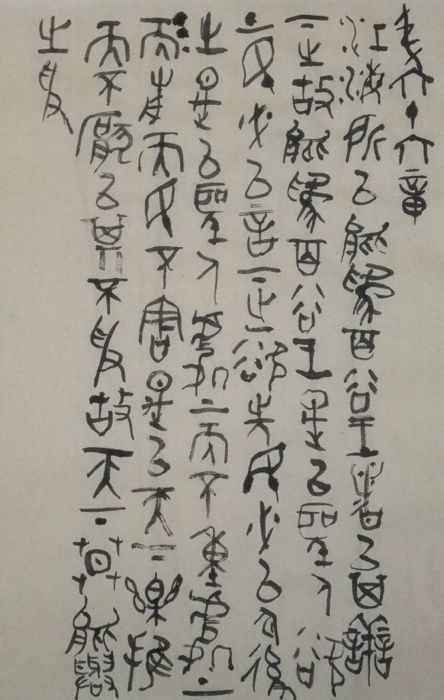 老六十六章
江海所以能為百谷王者以其善
下之故能為百谷王是以聖人欲
上民必以言下之欲先民必以身後
之是以聖人處上而不重處
而前而民不害是以天下樂推
而不厭以其不爭故天下莫能與
之爭